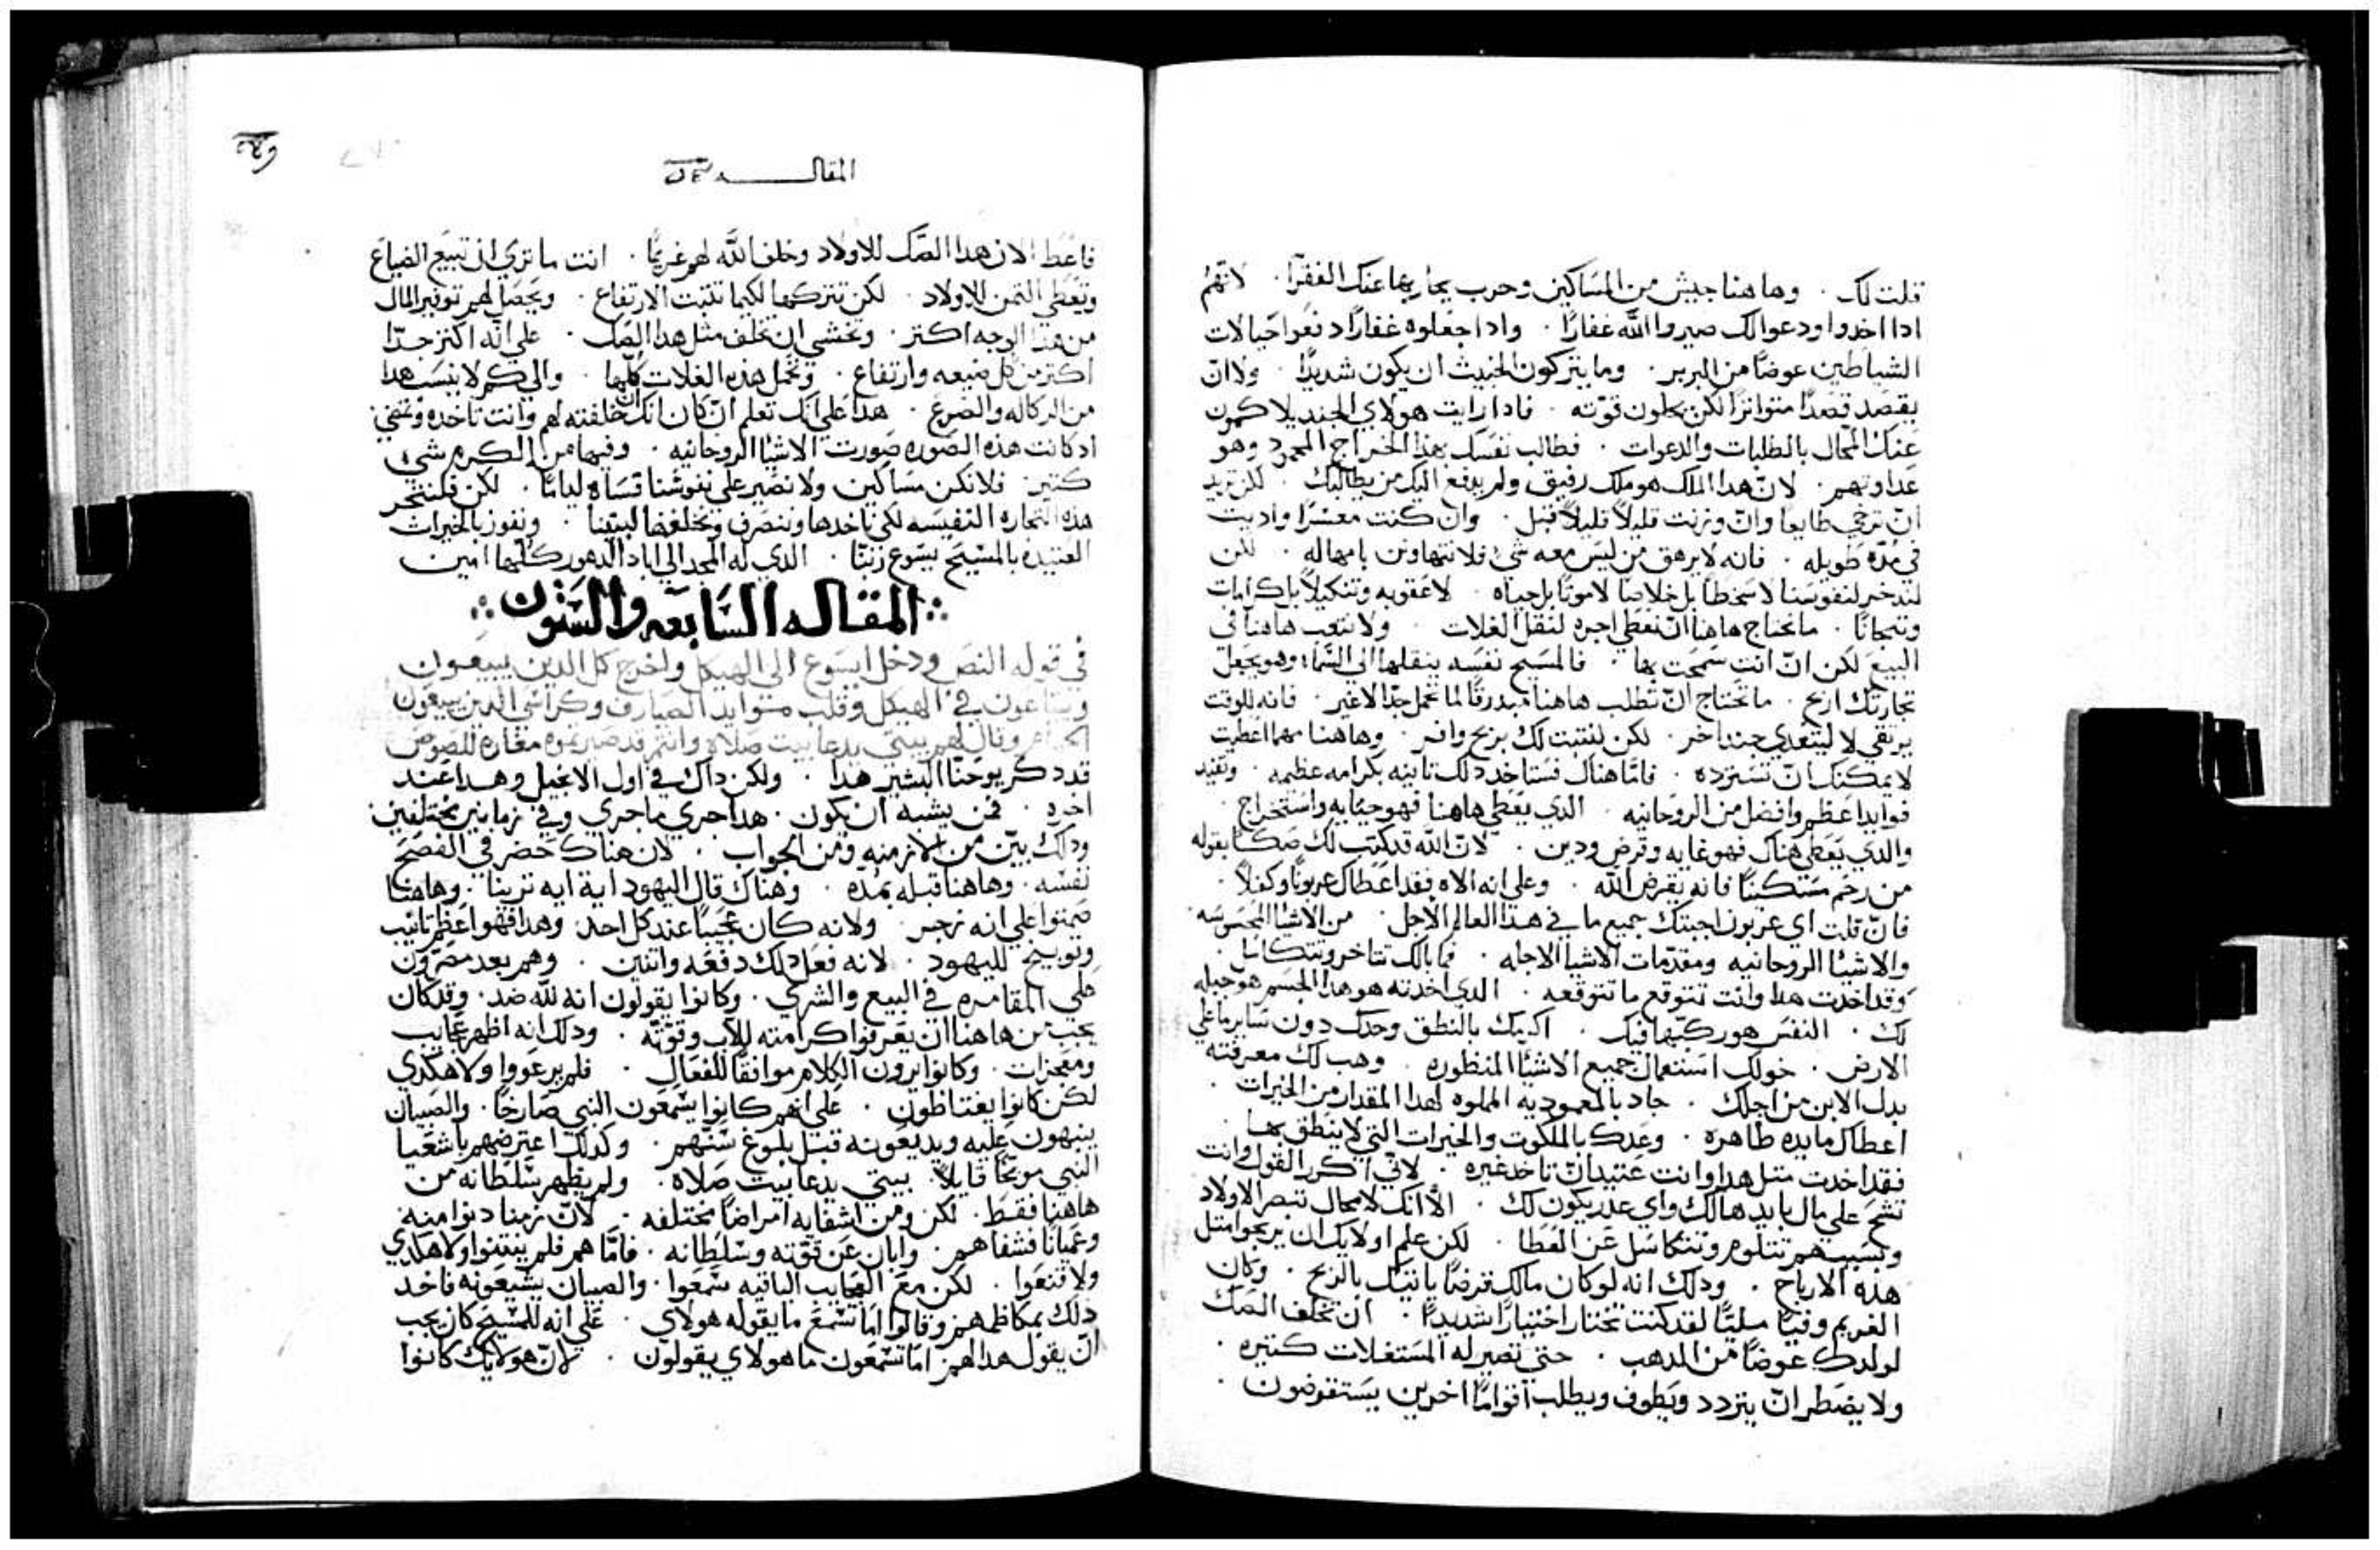 قلت لك . وهاهنا جيش من المساكين وحرب يحاربها عنك الفقرا . لانهم
ادا اخدوا ودعوا لك صيروا الله غفارًا . وادا جعلوه غفارًا دفعوا خيالات
الشياطين عوضًا من البربر . وما يتركون الخبيث ان يكون شديدًا . ولا ان
يقصد قصدًا متواترًا لكن يحلون قوته . فادا رايت هولاي الجند يلاكمون
عنك المحال بالطلبات والدعوات . فطالب نفسك بهدا الخراج المحمود وهو
عداوتهم . لان هدا الملك هو ملك رفيق ولم يدفع اليك من يطالبك . لكن يريد
ان ترخي طايعا وان وزنت قليلاً قليلاً قبل . وان كنت معسرًا واديت
في مده طويله . فانه لا يرهق من ليس معه شي فلا نتهاونن بامهاله . لكن
لندخر لنفوسنا لا سخطا بل خلاصا لا موتًا بل حياه . لا عقوبه وتنكيلاً بل كرامات
وتيجانًا . ما تحتاج هاهنا ان تعطي اجره لنقل الغلات . ولا تتعب هاهنا في
البيع لكن ان انت سمحت بها . فالمسيح نفسه ينقلها الي السما وهو يجعل
تجارتك اربح . ما تحتاج ان تطلب هاهنا مبدرقًا لما تحمل جدًا لا غير . فانه للوقت
يرتقي لا ليتغدي جند اخر . لكن لتتبت لك بربح وافر . وهاهنا مهما اعطيت
لا يمكنك ان تسترده . فاما هناك فستاخد دلك تانيه بكرامه عظيمه . وتفيد
فوايدا عظم وافضل من الروحانيه . الدي يعطي هاهنا فهو جبايه واستخراج .
والدي يعطي هناك فهو غايه وقرض ودين . لان الله قد كتب لك صكًا بقوله
من رحم مسكينًا فانه يقرض الله . وعلي انه الاه فقد اعطاك عربونًا وكفلاً .
فان قلت اي عربون اجبتك جميع ما في هدا العالم الاجل . من الاشيا المحسوسه
والاشيا الروحانيه ومقدمات الاشيا الاجله . فما بالك تتاخر وتتكاسل .
وقد اخدت هدا وانت تتوقع ما تتوقعه . الدي اخدته هو هدا الجسم هو جبله
لك . النفس هو ركبها فيك . اكرمك بالنطق وحدك دون ساير ما علي
الارض . خولك استعمال جميع الاشيا المنظوره . وهب لك معرفته
بدل الابن من اجلك . جاد بالمعموديه المملوه لهدا المقدار من الخيرات .
اعطاك مايده طاهره . وعدك بالملكوت والخيرات التي لا ينطق بها
فقد اخدت متل هدا وانت عتيد ان تاخد غيره . لاني اكرر القول وانت
تشح علي مال بايد هالك واي عدر يكون لك . الا انك لا محال تبصر الاولاد
وبسببهم تتلوم وتتكاسل عن العطا . لكن علم اولايك ان يربحوا متل
هده الارباح . ودلك انه لو كان مالك قرضًا ياتيك بالربح . وكان
الغريم وفيًا مليًا لقد كنت تختار اختيارًا شديدًا . ان تخلف الصك
لولدك عوضًا من الدهب . حتي تصير له المستغلات كتيره .
ولا يضطر ان يتردد ويطوف ويطلب اقوامًا اخرين يستقرضون .
المقاله
فاعط الان هدا الصك للاولاد وخلف الله لهم غريمًا . انت ما تري ان تبيع الضياع
وتعطي التمن للاولاد . لكن تتركها لكيما تتبت الارتفاع . ويحصل لهم توفير المال
من هدا الوجه اكتر . وتخشي ان تخلف متل هدا الصك . علي انه اكتر جدًا
اكتر من كل ضيعه وارتفاع . وتحمل هده الغلات كلها . والي كم لا ينسب هدا
من الركاكه والصرع . هدا علي انك تعلم ان كان انك ان خلفته لهم وانت تاخده وتمضي
اد كانت هده الصوره صورت الاشيا الروحانيه . وفيها من الكرم شي
كتير . فلا نكن مساكين ولا نصير علي نفوسنا قساه لياما . لكن فلنتجر
هده التجاره النفيسه لكي ناخدها وننصرف ونخلفها لبنينا . ونفوز بالخيرات
العتيده بالمسيح يسوع ربنا . الدي له المجد الي اباد الدهور كلها امين
المقاله السابعه والستون
في قوله النص ودخل ايسوع الي الهيكل واخرج كل الدين يبيعون
ويبتاعون في الهيكل وقلب موايد الصيارف وكراسي الدين يبيعون
الحمام وقال لهم بيتي يدعا بيت صلاه وانتم قد صيرتموه مغاره للصوص
قد دكر يوحنا البشير هدا . ولكن داك في اول الانجيل وهدا عند
اخره . فمن يشبه ان يكون . هدا جري ما جري وفي زمانين مختلفين
ودلك بين من الازمنه ومن الجواب . لان هناك حضر في الفصح
نفسه . وهاهنا قبله بمده . وهناك قال اليهود اية ايه ترينا . وهاهنا
صمتوا علي انه زجر . ولانه كان عجيبًا عند كل احد . وهدا فهو اعظم تانيب
وتوبيخ لليهود . لانه فعل دلك دفعه واتنين . وهم بعد مصرون
علي المقامره في البيع والشري . وكانوا يقولون انه لله ضد . وقد كان
يجب من هاهنا ان يعرفوا كرامته للاب وقوته . ودلك انه اظهر عجايب
ومعجزات . وكانوا يرون الكلام موافقًا للفعال . فلم يرعووا ولا هكدي
لكن كانوا يغتاظون . علي انهم كانوا يسمعون النبي صارخًا . والصبيان
ينبهون عليه ويديعونه قبل بلوغ سنهم . وكدلك اعترضهم باشعيا
النبي موبخًا قايلاً . بيتي يدعا بيت صلاه . ولم يظهر سلطانه من
هاهنا فقط . لكن ومن اشفايه امراضًا مختلفه . لان زمنا دنوا منه
وعميانًا فشفاهم . وابان عن قوته وسلطانه . فاما هم فلم ينتنوا ولا هكدي
ولا قنعوا . لكن مع العجايب الباقيه سمعوا . والصبيان يشيعونه فاخد
دلك بمكاظمهم وقالوا اما تسمع ما يقوله هولاي . علي انه للمسيح كان يجب
ان يقول هدا لهم اما تسمعون ما هولاي يقولون . لان هولايك كانوا